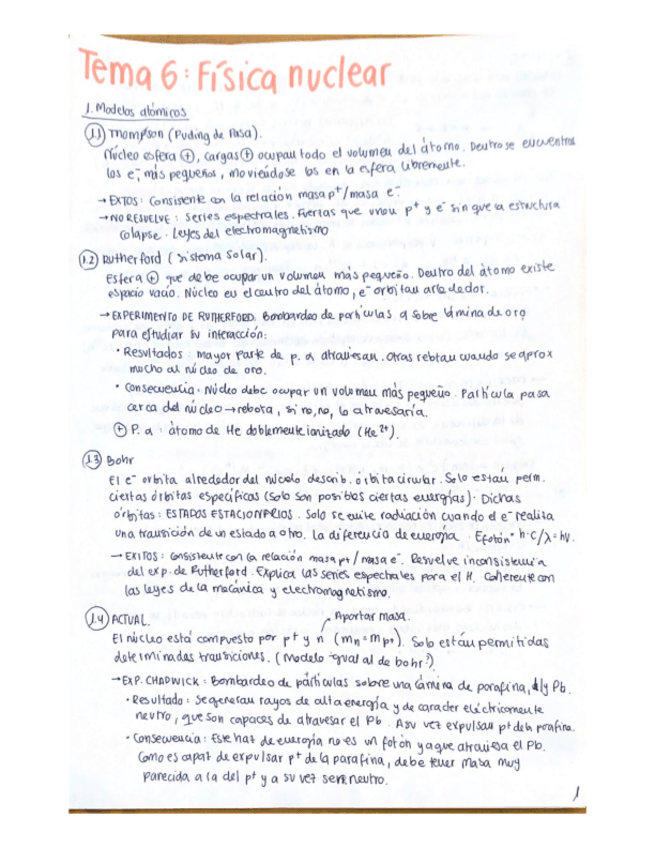 Tema 6: Física nuclear
1. Modelos atómicos
1.1) Thompson (Puding de Pasa).
Núcleo esfera ⊕, cargas ⊕ ocupan todo el volumen del átomo. Dentro se encuentran
los e⁻, más pequeños, moviéndose los en la esfera libremente.
→ EXITOS: Consistente con la relación masa p⁺/masa e⁻.
→ NO RESUELVE: Series espectrales. Fuerzas que unen p⁺ y e⁻ sin que la estructura
colapse. Leyes del electromagnetismo
1.2) Rutherford (sistema solar).
Esfera ⊕ que debe ocupar un volumen más pequeño. Dentro del átomo existe
espacio vacío. Núcleo en el centro del átomo, e⁻ orbitan alrededor.
→ EXPERIMENTO DE RUTHERFORD: Bombardeo de partículas α sobre lámina de oro
para estudiar su interacción:
· Resultados: mayor parte de p. α atraviesan. Otras rebotan cuando se aprox
mucho al núcleo de oro.
· Consecuencia: Núcleo debe ocupar un volumen más pequeño. Partícula pasa
cerca del núcleo → rebota, si no, no, lo atravesaría.
⊕ P. α: átomo de He doblemente ionizado (He²⁺).
1.3) Bohr
El e⁻ orbita alrededor del núcleo describ. órbita circular. Solo están perm.
ciertas órbitas específicas (solo son posibles ciertas energías). Dichas
órbitas: ESTADOS ESTACIONARIOS. Solo se emite radiación cuando el e⁻ realiza
una transición de un estado a otro. La diferencia de energía. Efotón = h·c/λ = hν.
→ EXITOS: consistente con la relación masa p⁺/masa e⁻. Resuelve inconsistencia
del exp. de Rutherford. Explica las series espectrales para el H. Coherente con
las leyes de la mecánica y electromagnetismo.
1.4) ACTUAL. Aportar masa.
El núcleo está compuesto por p⁺ y n (mn = mp⁺). Solo están permitidas
determinadas transiciones. (Modelo igual al de bohr?)
→ EXP. CHADWICK: Bombardeo de partículas sobre una lámina de parafina, y Pb.
· Resultado: se generan rayos de alta energía y de caracter eléctricamente
neutro, que son capaces de atravesar el Pb. A su vez expulsan p⁺ de la parafina.
· Consecuencia: Este haz de energía no es un fotón ya que atraviesa el Pb.
Como es capaz de expulsar p⁺ de la parafina, debe tener masa muy
parecida a la del p⁺ y a su vez ser neutro.
1